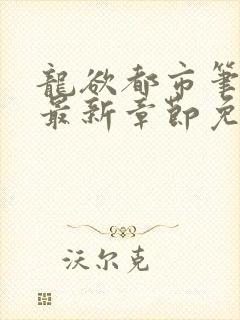 龍欲都市筆
最新章節免
沃尔克